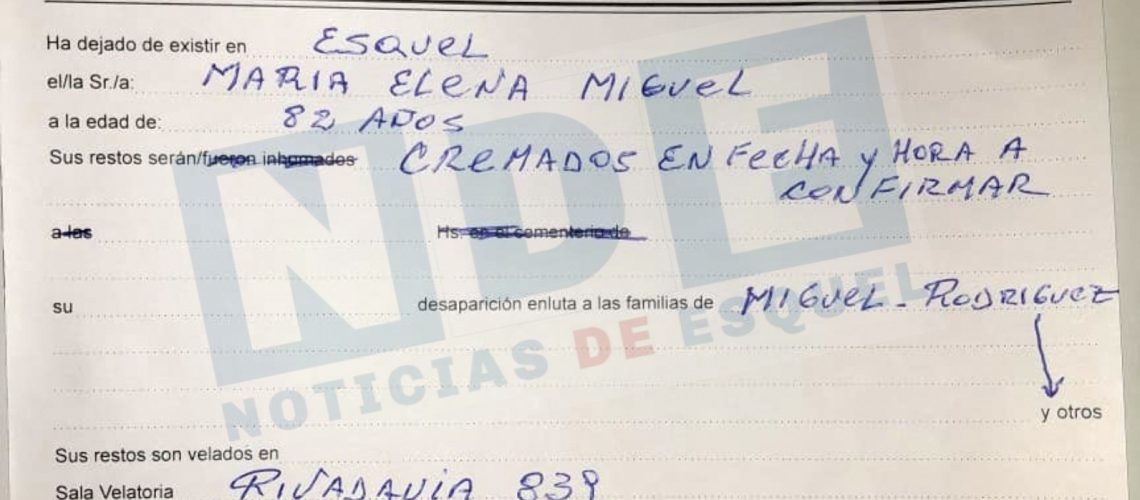 Ha dejado de existir en ESQUEL
el/la Sr./a: MARIA ELENA MIGUEL
a la edad de: 82 AÑOS
Sus restos serán/fueron inhumados CREMADOS EN FECHA y HORA A
CONFIRMAR
a las Hs. en el cementerio de
su desaparición enluta a las familias de MIGUEL - RODRIGUEZ
y otros
Sus restos son velados en
Sala Velatoria RIVADAVIA 839
NDE
NOTICIAS DE ESQUEL